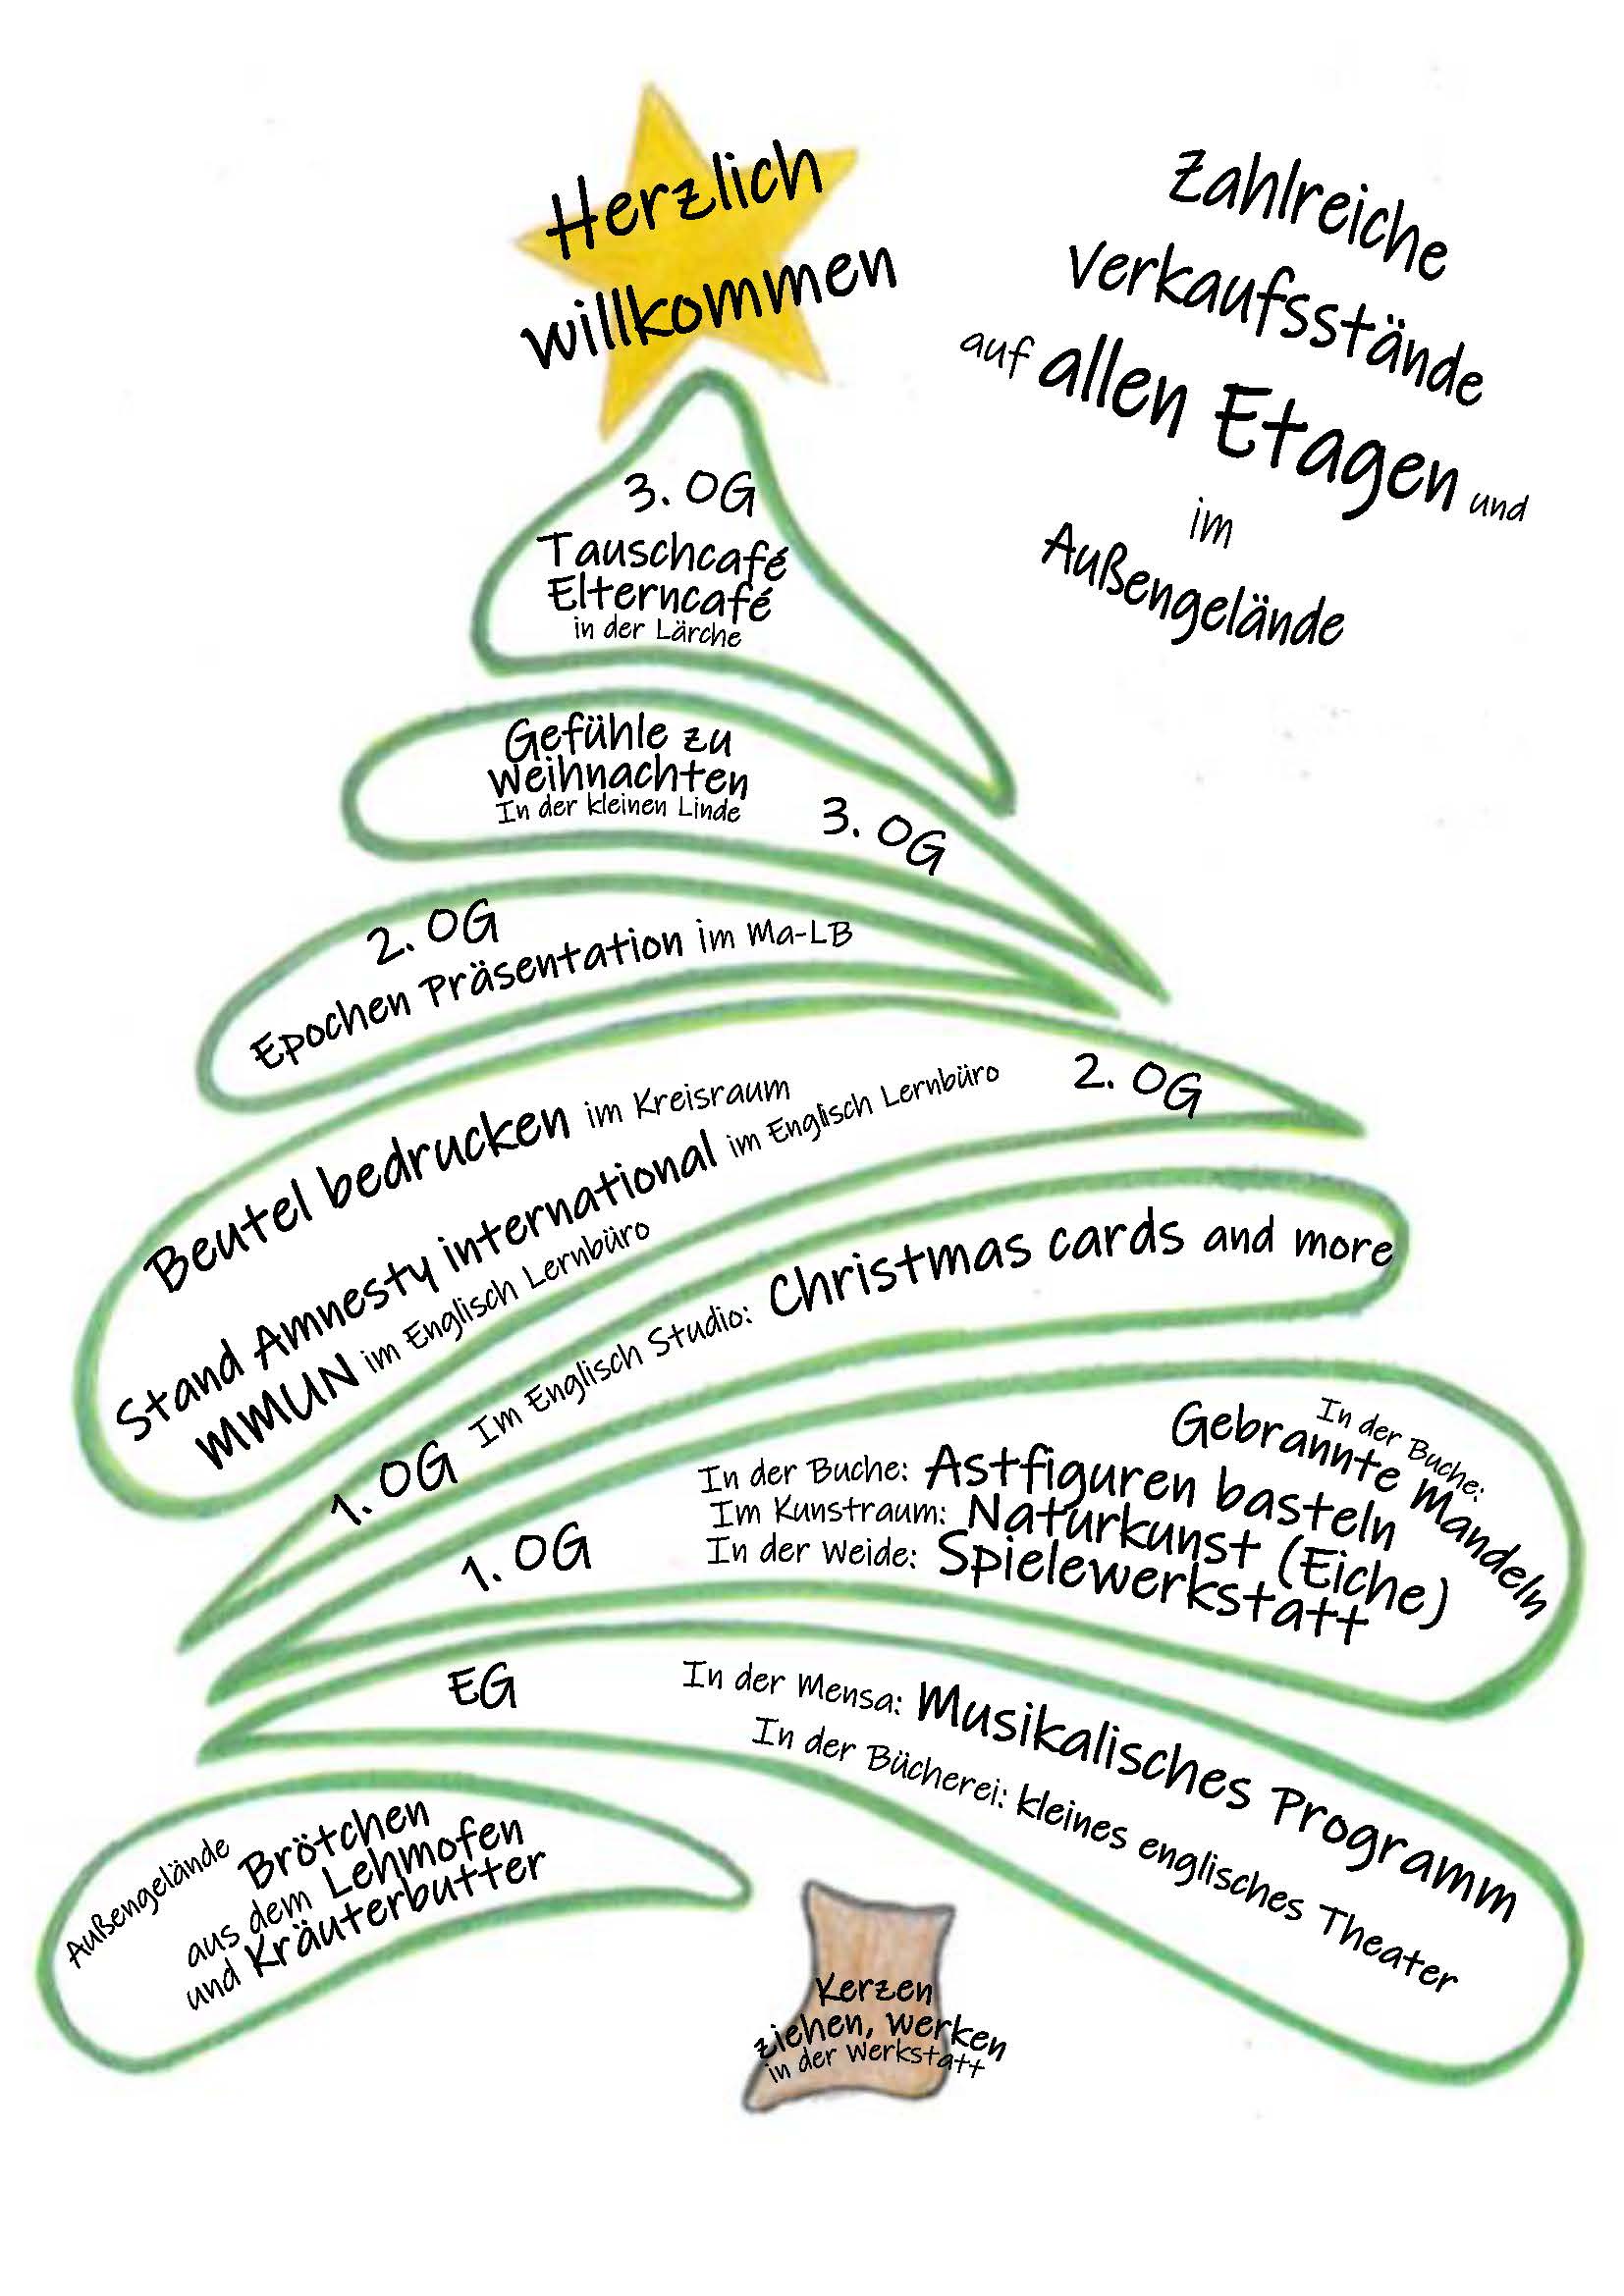 Herzlich
willkommen
Zahlreiche
Verkaufsstände
auf allen Etagen und
im
Außengelände
3. OG
Tauschcafé
Elterncafé
in der Lärche
Gefühle zu
Weihnachten
In der kleinen Linde
3. OG
2. OG
Epochen Präsentation im Ma-LB
2. OG
Beutel bedrucken im Kreisraum
Stand Amnesty international im Englisch Lernbüro
MMUN im Englisch Lernbüro
1. OG Im Englisch Studio: Christmas cards and more
1. OG
In der Buche:
Gebrannte Mandeln
In der Buche: Astfiguren basteln
Im Kunstraum: Naturkunst (Eiche)
In der Weide: Spielewerkstatt
EG
In der Mensa: Musikalisches Programm
In der Bücherei: kleines englisches Theater
Außengelände
Brötchen
aus dem Lehmofen
und Kräuterbutter
Kerzen
ziehen, Werken
in der Werkstatt